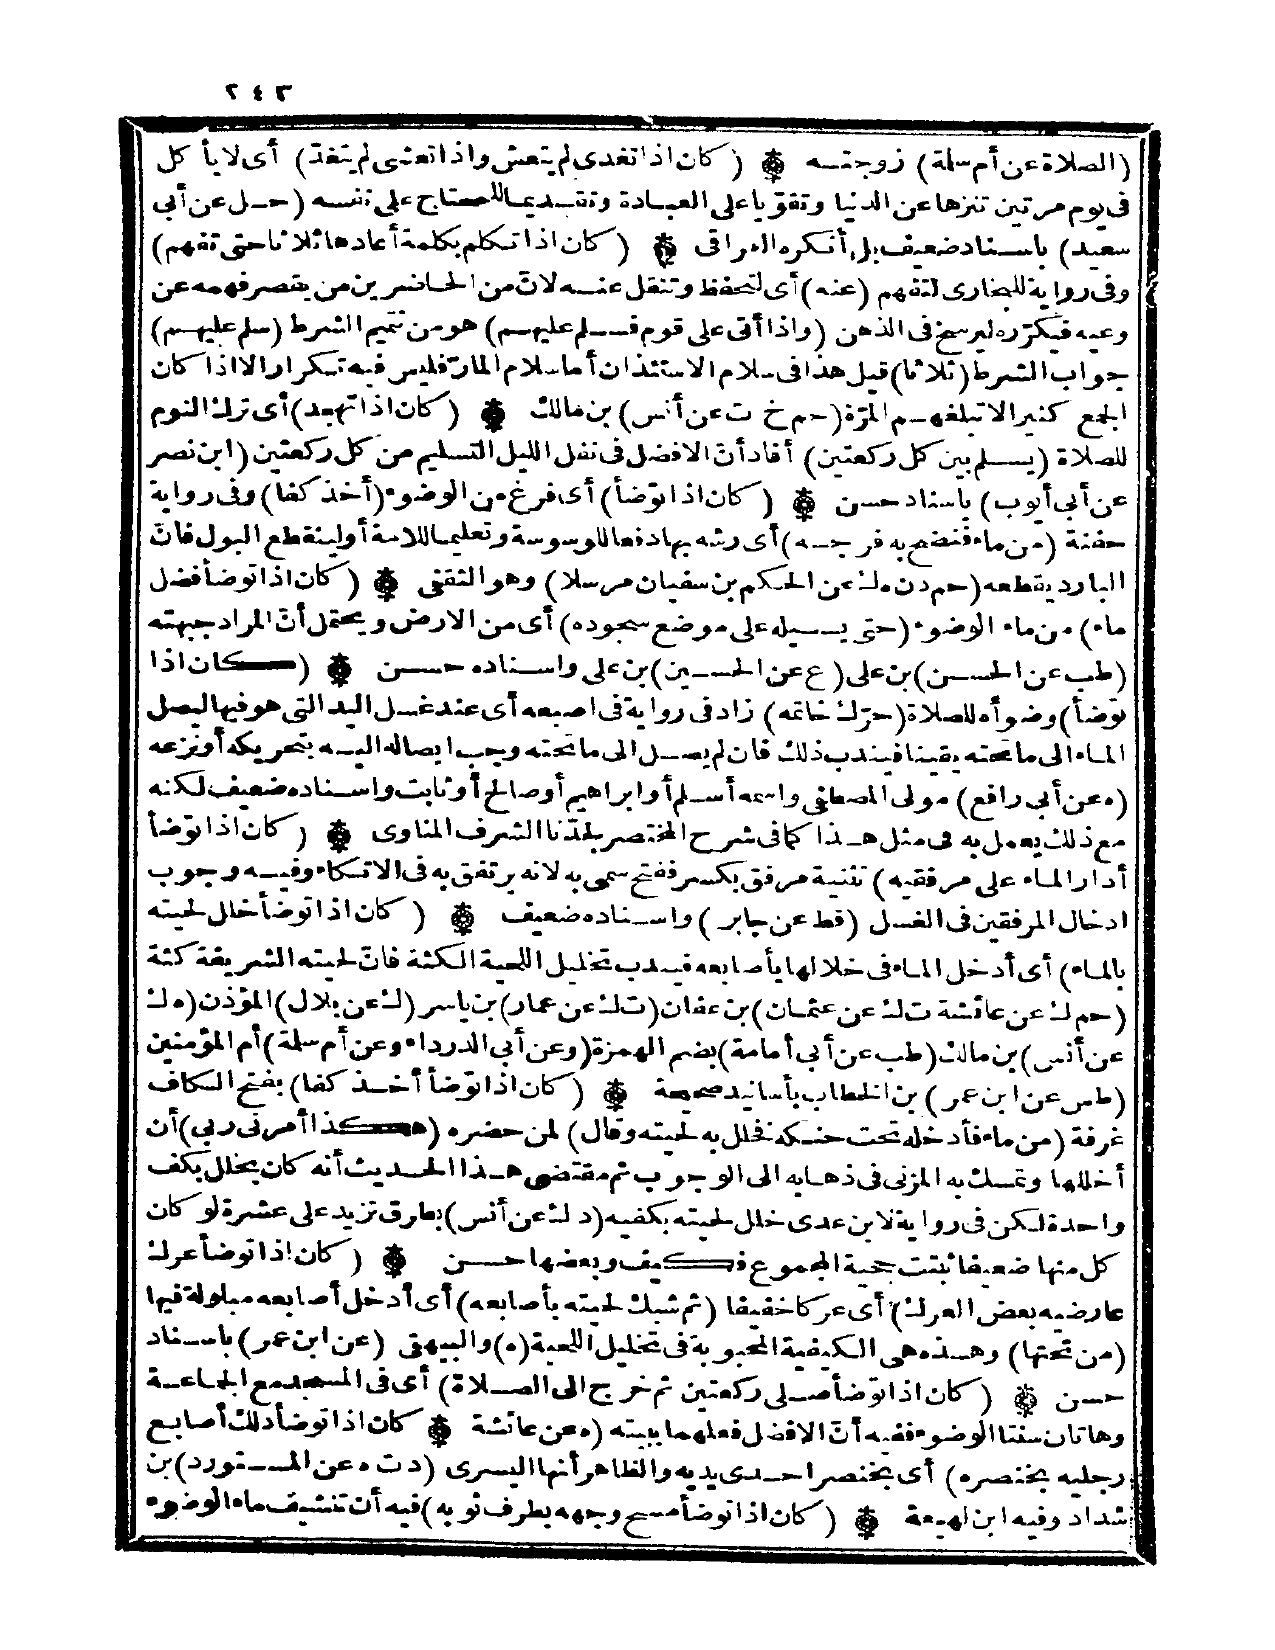 ٢٤٣
(الصلاة عن أم سلة) زوجته ۞ (كان اذا تغدى لم يتعش واذا تعشى لم يتغد) أى لا يأ كل
فى يوم مرتين تنزها عن الدنيا وتقويا على العبادة وتقديما للمحتاج على نفسه (حل عن أبى
سعيد) باسناد ضعيف بل أنكره العراقى ۞ (كان اذا تكلم بكلمة أعادها ثلاثا حتى تفهم)
وفى رواية للبخارى لتفهم (عنه) أى لتحفظ وتنقل عنه لان من الحاضرين من يقصر فهمه عن
وعيه فيكرّره ليرسخ فى الذهن (واذا أتى على قوم فسلم عليهم) هو من تتميم الشرط (سلم عليهم)
جواب الشرط (ثلاثا) قيل هذا فى سلام الاستئذان أما سلام المارّ فليس فيه تكرار الا اذا كان
الجمع كثير الا تبلغهم المرّة (حم خ ت عن أنس) بن مالك ۞ (كان اذا تهجد) أى ترك النوم
للصلاة (يسلم بين كل ركعتين) أفاد أنّ الافضل فى نفل الليل التسليم من كل ركعتين (ابن نصر
عن أبى أيوب) باسناد حسن ۞ (كان اذا توّضأ) أى فرغ من الوضوء (أخذ كفا) وفى رواية
حفنة (من ماء فنضح به فرجه) أى رشه بها دفعا للوسوسة وتعليما للامة أو لينقطع البول فانّ
البارد يقطعه (حم د ن ه ك عن الحكم بن سفيان مرسلا) وهو الثقفى ۞ (كان اذا توضأ فضل
ماء) من ماء الوضوء (حتى يسيله على موضع سجوده) أى من الارض ويحتمل أنّ المراد جبهته
(طب عن الحسن) بن على (ع عن الحسين) بن على واسناده حسن ۞ (كان اذا
توّضأ) وضوأه للصلاة (حرّك خاتمه) زاد فى رواية فى اصبعه أى عند غسل اليد التى هو فيها ليصل
الماء الى ما تحته يقينا فيندب ذلك فان لم يصل الى ما تحته وجب ايصاله اليه بتحريكه أو نزعه
(ه عن أبى رافع) مولى المصطفى واسمه أسلم أو ابراهيم أو صالح أو ثابت واسناده ضعيف لكنه
مع ذلك يعمل به فى مثل هذا كما فى شرح المختصر لجدّنا الشرف المناوى ۞ (كان اذا توّضأ
أدار الماء على مرفقيه) تثنية مرفق بكسر ففتح سمى به لانه يرتفق به فى الاتكاء وفيه وجوب
ادخال المرفقين فى الغسل (قط عن جابر) واسناده ضعيف ۞ (كان اذا توضأ خلل لحيته
بالماء) أى أدخل الماء فى خلالها بأصابعه فيندب تخليل اللحية الكثة فانّ لحيته الشريفة كثة
(حم ك عن عائشة ت ك عن عثمان) بن عفان (ت ك عن عمار) بن ياسر (ك عن بلال) المؤذن (ه ك
عن أنس) بن مالك (طب عن أبى أمامة) بضم الهمزة (وعن أبى الدرداء وعن أم سلة) أم المؤمنين
(طس عن ابن عمر) بن الخطاب بأسانيد صحيحة ۞ (كان اذا توّضأ أخذ كفا) بفتح الكاف
غرفة (من ماء فأدخله تحت حنكه فخلل به لحيته وقال) لمن حضره (هكذا أمرنى ربى) أن
أخللها وتمسك به المزنى فى ذهابه الى الوجوب ثم مقتضى هذا الحديث أنه كان يخلل بكف
واحدة لكن فى رواية لابن عدى خلل لحيته بكفيه (د ك عن أنس) بطرق تزيد على عشرة لو كان
كل منها ضعيفا ثبتت حجية المجموع فكيف وبعضها حسن ۞ (كان اذا توضأ عرك
عارضيه بعض العرك) أى عركا خفيفا (ثم شبك لحيته بأصابعه) أى أدخل أصابعه مبلولة فيها
(من تحتها) وهذه هى الكيفية المحبوبة فى تخليل اللحية (ه) والبيهقى (عن ابن عمر) باسناد
حسن ۞ (كان اذا توّضأ صلى ركعتين ثم خرج الى الصلاة) أى فى المسجد مع الجماعة
وهاتان سنتا الوضوء ففيه أنّ الافضل فعلهما ببيته (ه عن عائشة ۞ كان اذا توضأ دلك أصابع
رجليه بخنصره) أى بخنصر احدى يديه والظاهر أنها اليسرى (د ت ه عن المستورد) بن
شداد وفيه ابن لهيعة ۞ (كان اذا توضأ مسح وجهه بطرف ثوبه) فيه أن تنشيف ماء الوضوء